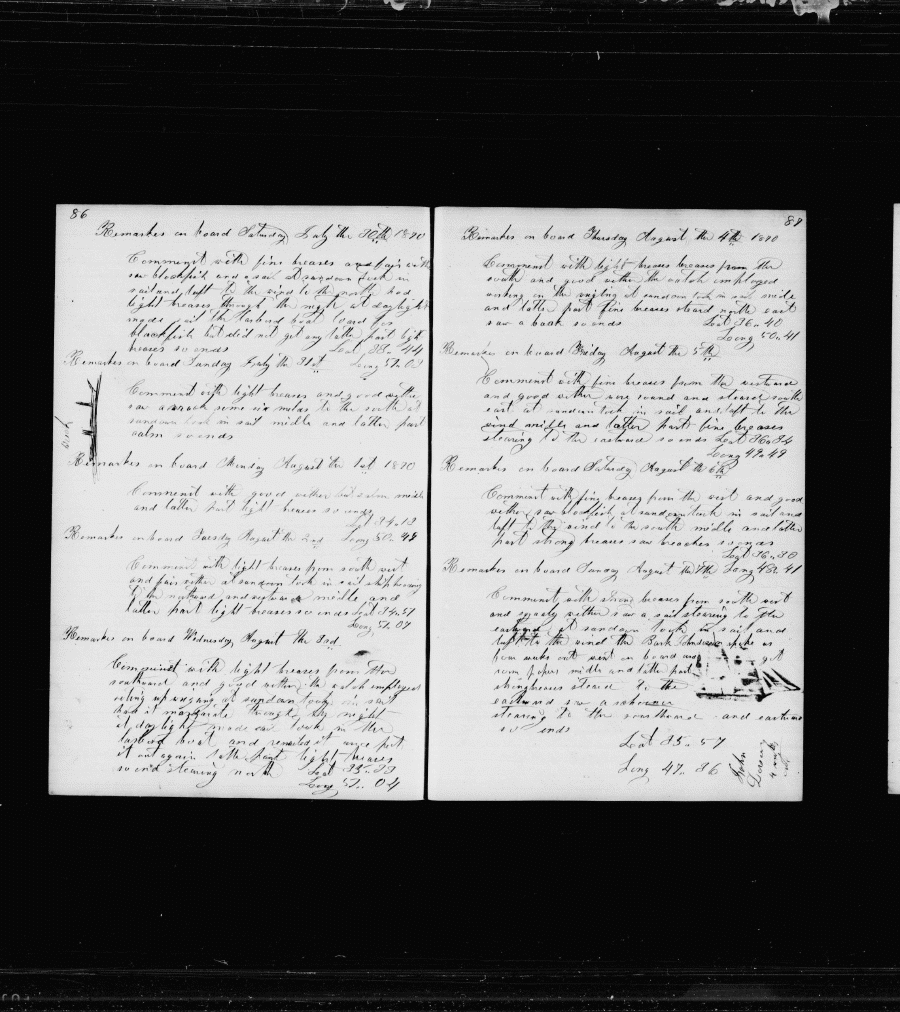 86
Remarkes on board Saturday July the 30th 1870
Commenut with fine breases and fair with
saw blackfish and a sail at sandown took in
sail and luft to the wind to the north had
light breases through the night at daylight
made sail the larbord boat loard for
blackfish but did not get any latter part light
breases so ends Lat 35.. 44
Remarkes on board Sunday July the 31st Long 51.. 03
Commenut with light breases and good wither
saw a barck some six miles to the south at
sandown took in sail midle and latter part
calm so ends
Barck
Remarkes on board Monday August the 1st 1870
Commenut with good wither midle
and latter part light breases so ends
Lat 34..13
Remarkes on board Tuesday August the 2nd Long 50.. 48
Commenut with light breases from south west
and fair wither at sandown took in sail ship heading
to the midle and
latter part light breases so ends Lat 34..51
Long 51.. 07
Remarkes on board Wednesday August the 3rd
Commenut with light breases from the
southward and good wither the watch employed
at sandown took in sail
through the night
at daylight made sail took in the
larbord boat and put
it out again latter part light breases
so ends stearing north Lat 35..
Long 51.. 04
87
Remarkes on board Thursday August the 4th 1870
Commenut with light breases breases from the
south and good wither the watch employed
working on the at sandown took in sail midle
and latter part fine breases steard north east
saw a barck so ends Lat 36.. 40
Long 50.. 41
Remarkes on board Friday August the 5th
Commenut with fine breases from the westward
and good wither and steard south
east at sandown took in sail and luft to the
wind midle and latter part fine breases
stearing to the eastward so ends Lat 36..34
Long 49..49
Remarkes on board Saturday August the 6th
Commenut with fine breases from the west and good
wither saw blackfish at sandown took in sail and
luft to the wind to the south midle and latter
part strong breases saw breaches so ends
Lat 36.. 30
Remarkes on board Sunday August the 7th Long 48.. 41
Commenut with strong breases from south west
and squaly wither saw a sail stearing to the
eastward at sandown took in sail and
luft to the wind the Bark spoke us
from went on board and got
som papers midle and latter part
strong breases steard to the
eastward saw a schooner
stearing to the southward and eastward
so ends
Lat 35.. 57
Long 47.. 86
John